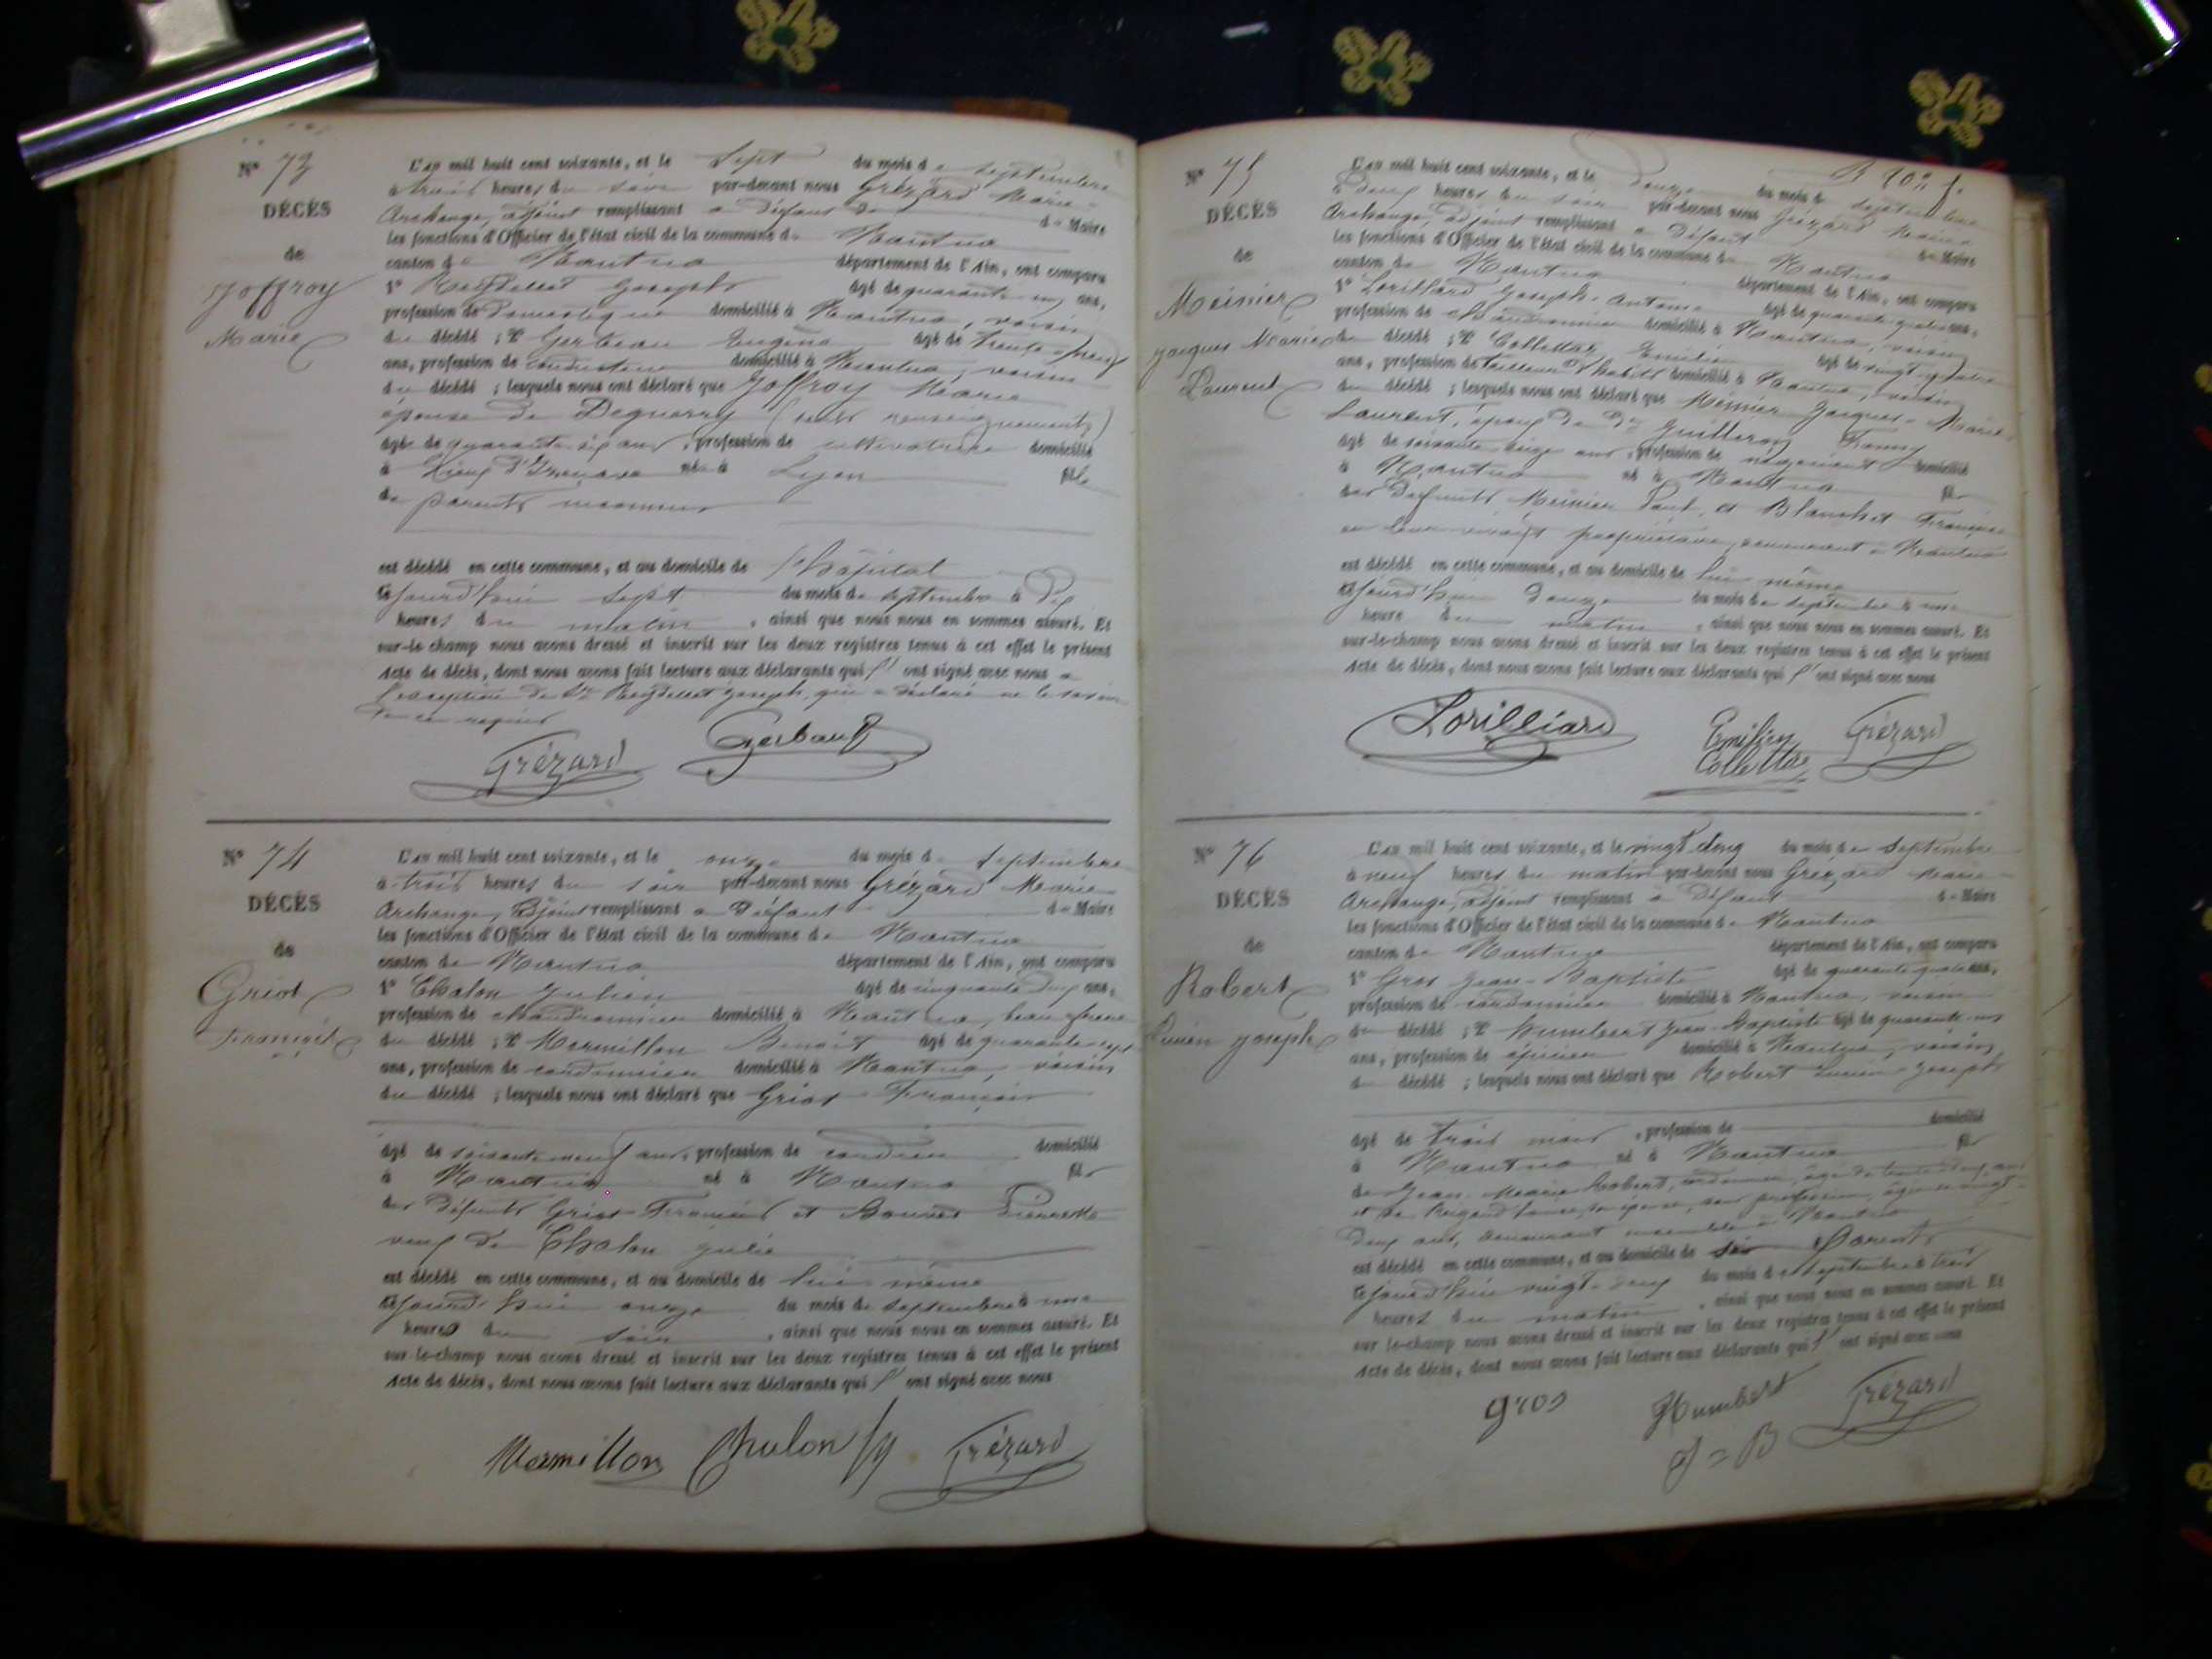 N° 73
DÉCÈS
de
Joffroy
Marie
L'an mil huit cent soixante, et le sept du mois de septembre
à trois heures du soir par-devant nous Grézard Marie
Archange, adjoint remplissant à défaut de de Maire
les fonctions d'Officier de l'état civil de la commune de Nantua
canton de Nantua département de l'Ain, ont comparu
1° Joseph âgé de quarante ans,
profession de Domestique domicilié à Nantua, voisin
du décédé ; 2° Eugène âgé de trente neuf
ans, profession de conducteur domicilié à Nantua, voisin
du décédé ; lesquels nous ont déclaré que Joffroy Marie
épouse de Deguerry (sans renseignements)
âgée de quarante six ans, profession de cultivatrice domicilié
à née à Lyon fille
de parents inconnus
est décédé en cette commune, et au domicile de l'hôpital
aujourd'hui sept du mois de septembre à dix
heures du matin, ainsi que nous nous en sommes assuré. Et
sur-le-champ nous avons dressé et inscrit sur les deux registres tenus à cet effet le présent
Acte de décès, dont nous avons fait lecture aux déclarants qui l' ont signé avec nous à
l'exception de Joseph qui a déclaré ne le savoir
de ce requis
Grézard Gerbaud
N° 74
DÉCÈS
de
Griot
François
L'an mil huit cent soixante, et le onze du mois de septembre
à trois heures du soir par-devant nous Grézard Marie
Archange, adjoint remplissant à défaut de Maire
les fonctions d'Officier de l'état civil de la commune de Nantua
canton de Nantua département de l'Ain, ont comparu
1° Chalon Julien âgé de cinquante deux ans,
profession de chaudronnier domicilié à Nantua, beau-frère
du décédé ; 2° Mermillon Benoit âgé de quarante sept
ans, profession de cordonnier domicilié à Nantua, voisin
du décédé ; lesquels nous ont déclaré que Griot François
âgé de soixante neuf ans, profession de domicilié
à Nantua né à Nantua fils
des défunts Griot François et Pierrette
veuf de Chalon Julie
est décédé en cette commune, et au domicile de lui même
aujourd'hui onze du mois de septembre à une
heure du soir, ainsi que nous nous en sommes assuré. Et
sur-le-champ nous avons dressé et inscrit sur les deux registres tenus à cet effet le présent
Acte de décès, dont nous avons fait lecture aux déclarants qui l' ont signé avec nous
Mermillon Chalon Grézard
N° 75
DÉCÈS
de
Meinier
Jacques Marie
Laurent
L'an mil huit cent soixante, et le douze du mois de septembre
à deux heures du soir par-devant nous Grézard Marie
Archange, adjoint remplissant à défaut de Maire
les fonctions d'Officier de l'état civil de la commune de Nantua
canton de Nantua département de l'Ain, ont comparu
1° Lorilliard Joseph-Antoine âgé de quarante quatre ans,
profession de chaudronnier domicilié à Nantua, voisin
du décédé ; 2° Collettaz Emilien âgé de vingt quatre
ans, profession de tailleur d'habits domicilié à Nantua, voisin
du décédé ; lesquels nous ont déclaré que Meinier Jacques-Marie
Laurent, époux de Dme Guilleron Fanny
âgé de soixante ans, profession de négociant domicilié
à Nantua né à Nantua fils
des défunts Meinier Paul, et Blanchet Françoise
en leur vivant propriétaires, demeurant à Nantua
est décédé en cette commune, et au domicile de lui même
aujourd'hui douze du mois de septembre à une
heure du matin, ainsi que nous nous en sommes assuré. Et
sur-le-champ nous avons dressé et inscrit sur les deux registres tenus à cet effet le présent
Acte de décès, dont nous avons fait lecture aux déclarants qui l' ont signé avec nous
Lorilliard Emilien Grézard
Collettaz
N° 76
DÉCÈS
de
Robert
Lucien Joseph
L'an mil huit cent soixante, et le vingt deux du mois de septembre
à neuf heures du matin par-devant nous Grézard Marie
Archange, adjoint remplissant à défaut de Maire
les fonctions d'Officier de l'état civil de la commune de Nantua
canton de Nantua département de l'Ain, ont comparu
1° Gros Jean-Baptiste âgé de quarante quatre ans,
profession de cordonnier domicilié à Nantua, voisin
du décédé ; 2° Humbert Jean-Baptiste âgé de quarante
ans, profession de épicier domicilié à Nantua, voisin
du décédé ; lesquels nous ont déclaré que Robert Lucien Joseph
âgé de trois mois, profession de domicilié
à Nantua né à Nantua fils
de Jean-Marie Robert, cordonnier, âgé de trente deux ans
et de son épouse, sans profession, âgée de vingt
deux ans, demeurant ensemble à Nantua
est décédé en cette commune, et au domicile de ses Parents
aujourd'hui vingt-deux du mois de septembre à trois
heures du matin, ainsi que nous nous en sommes assuré. Et
sur-le-champ nous avons dressé et inscrit sur les deux registres tenus à cet effet le présent
Acte de décès, dont nous avons fait lecture aux déclarants qui l' ont signé avec nous
Gros Humbert Grézard
J=B